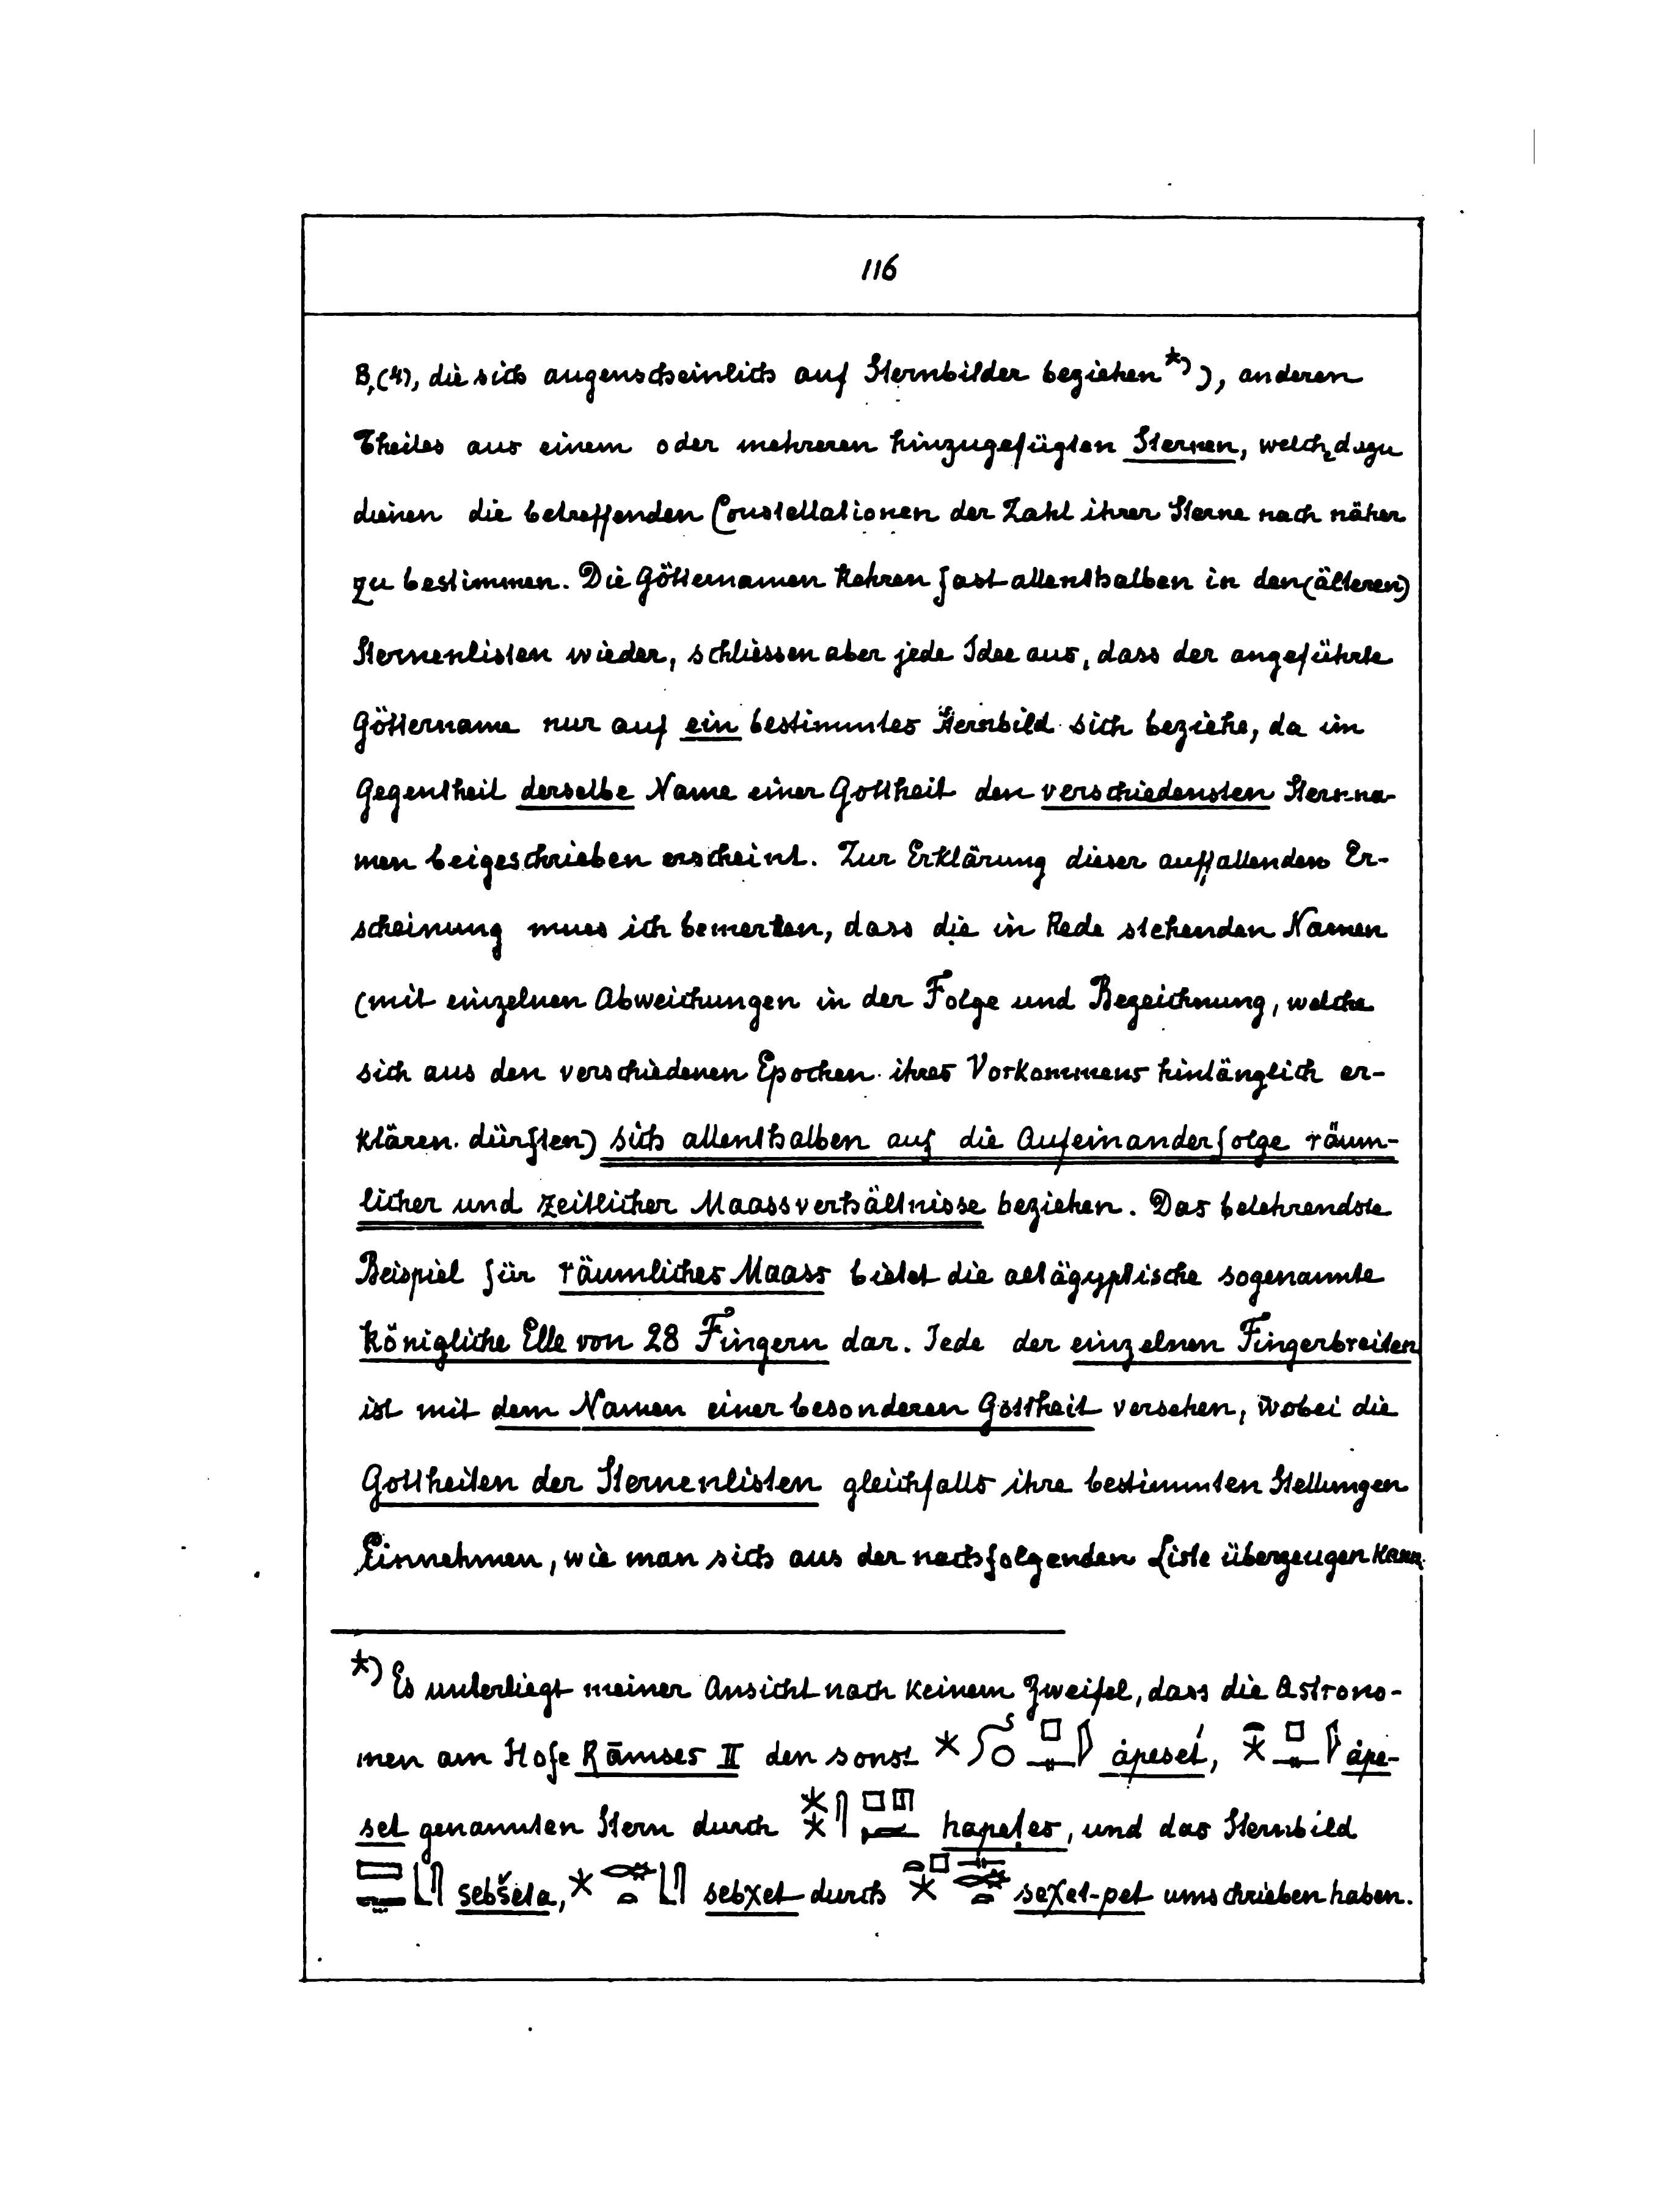 116
B,(4), die sich augenscheinlich auf Sternbilder beziehen*)), anderen
Theiles aus einem oder mehreren hinzugefügten Sternen, welche dazu
dienen die betreffenden Constellationen der Zahl ihrer Sterne nach näher
zu bestimmen. Die Götternamen kehren fast allenthalben in den (älteren)
Sternenlisten wieder, schliessen aber jede Idee aus, dass der angeführte
Göttername nur auf ein bestimmtes Sternbild sich beziehe, da im
Gegentheil derselbe Name einer Gottheit den verschiedensten Sternna-
men beigeschrieben erscheint. Zur Erklärung dieser auffallenden Er-
scheinung muss ich bemerken, dass die in Rede stehenden Namen
(mit einzelnen Abweichungen in der Folge und Bezeichnung, welche
sich aus den verschiedenen Epochen ihres Vorkommens hinlänglich er-
klären dürften) sich allenthalben auf die Aufeinanderfolge räum-
licher und zeitlicher Maassverhältnisse beziehen. Das belehrendste
Beispiel für räumliches Maass bietet die altägyptische sogenannte
königliche Elle von 28 Fingern dar. Jede der einzelnen Fingerbreiten
ist mit dem Namen einer besonderen Gottheit versehen, wobei die
Gottheiten der Sternenlisten gleichfalls ihre bestimmten Stellungen
Einnehmen, wie man sich aus der nachfolgenden Liste überzeugen kann.
*) Es unterliegt meiner Ansicht nach keinem Zweifel, dass die Astrono-
men am Hofe Rāmses II den sonst ȧpeset, ȧpe-
set genannten Stern durch hapeṭes, und das Sternbild
sebšeta, sebχet durch seχet-pet umschrieben haben.